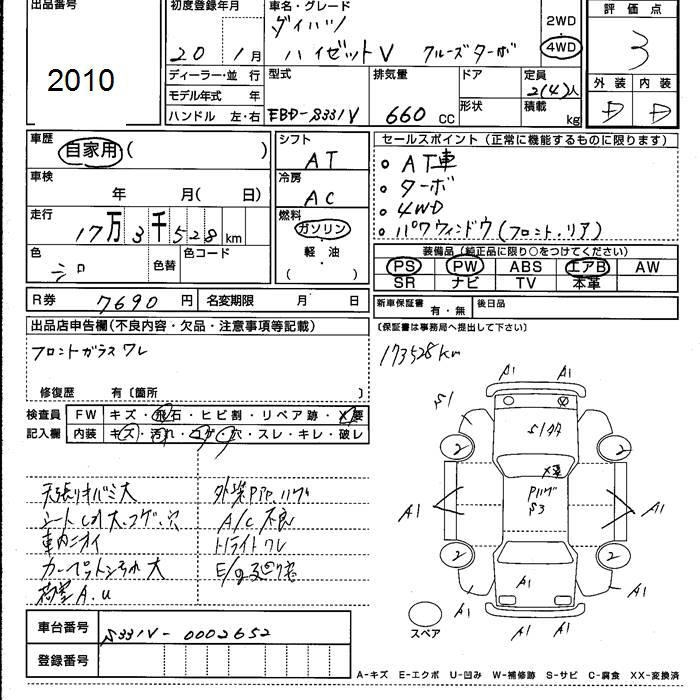 出品番号
2010
初度登録年月
20 1月
車名・グレード
ダイハツ
ハイゼットV クルーズターボ
2WD
4WD
評価点
3
外装 内装
D D
ディーラー・並行
モデル年式 年
ハンドル 左・右
型式
EBD-S331V
排気量
660 CC
ドア
形状
定員
2(4)人
積載
kg
車歴
自家用( )
車検
年 月( 日)
走行
17万3千528km
色
シロ
色替
色コード
シフト
AT
冷房
AC
燃料
ガソリン
軽油
( )
セールスポイント(正常に機能するものに限ります)
• AT車
• ターボ
• 4WD
• パワウィンドウ(フロント・リア)
装備品(純正品に限り○をつけてください)
PS PW ABS エアB AW
SR ナビ TV 本革
R券 7690円
名変期限 月 日
新車保証書 有・無
後日品
(保証書は事務局へ提出して下さい)
出品店申告欄(不良内容・欠品・注意事項等記載)
フロントガラスワレ
修復歴 有〔箇所 〕
173528km
検査員
記入欄
FW キズ・飛石・ヒビ割・リペア跡・X要
内装 キズ・汚れ・コゲ・穴・スレ・キレ・破レ
天張リオバミ大
シート 大・コゲ・穴
車内ニオイ
カーペット 大
荷室A.U
A/C不良
トライトワレ
A1 A1
S1
2 2
X要
S3
A1 A1
2 2
A1
A1
A1 A1
A1
スペア
車台番号
S331V-0002652
登録番号
A-キズ E-エクボ U-凹み W-補修跡 S-サビ C-腐食 XX-交換済